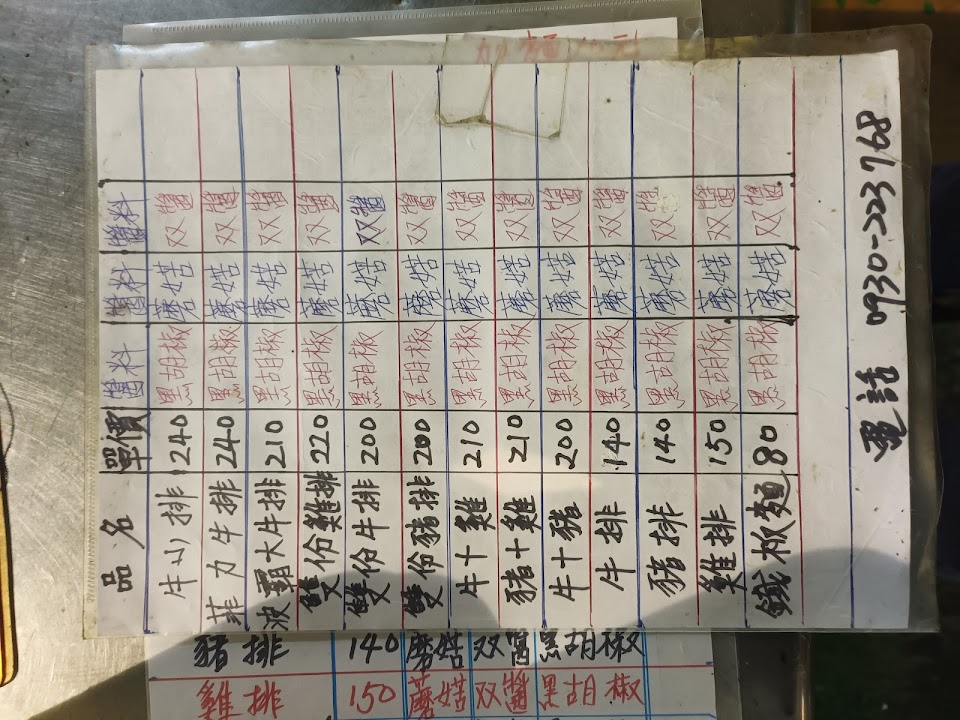 品名 單價 醬料 醬料 醬料
牛小排 240 黑胡椒 蘑菇 双醬
菲力牛排 240 黑胡椒 蘑菇 双醬
波霸大牛排 210 黑胡椒 蘑菇 双醬
雙份雞排 220 黑胡椒 蘑菇 双醬
雙份牛排 200 黑胡椒 蘑菇 双醬
雙份豬排 200 黑胡椒 蘑菇 双醬
牛+雞 210 黑胡椒 蘑菇 双醬
豬+雞 210 黑胡椒 蘑菇 双醬
牛+豬 200 黑胡椒 蘑菇 双醬
牛排 140 黑胡椒 蘑菇 双醬
豬排 140 黑胡椒 蘑菇 双醬
雞排 150 黑胡椒 蘑菇 双醬
鐵板麵 80 黑胡椒 蘑菇 双醬
電話 0930-223768
豬排 140 蘑菇 双醬 黑胡椒
雞排 150 蘑菇 双醬 黑胡椒